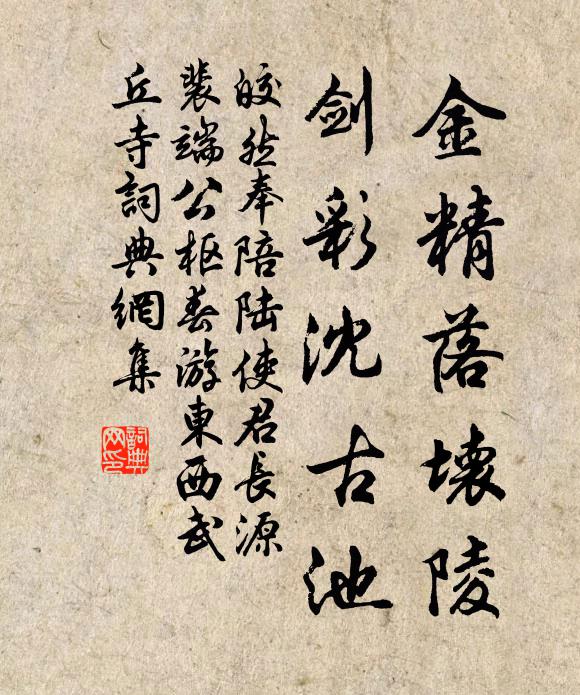 金精落壊陵
剑彩沈古池
皎然奉陪陆使君長源
裴端公枢春游東西武
丘寺詞典網集
詞典网印